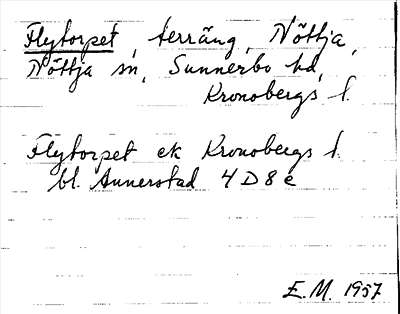 Flytorpet, terräng, Nöttja,
Nöttja sn, Sunnerbo hd,
Kronobergs l.
Flytorpet ek Kronobergs l.
bl. Annerstad 4 D 8 e
E.M. 1957